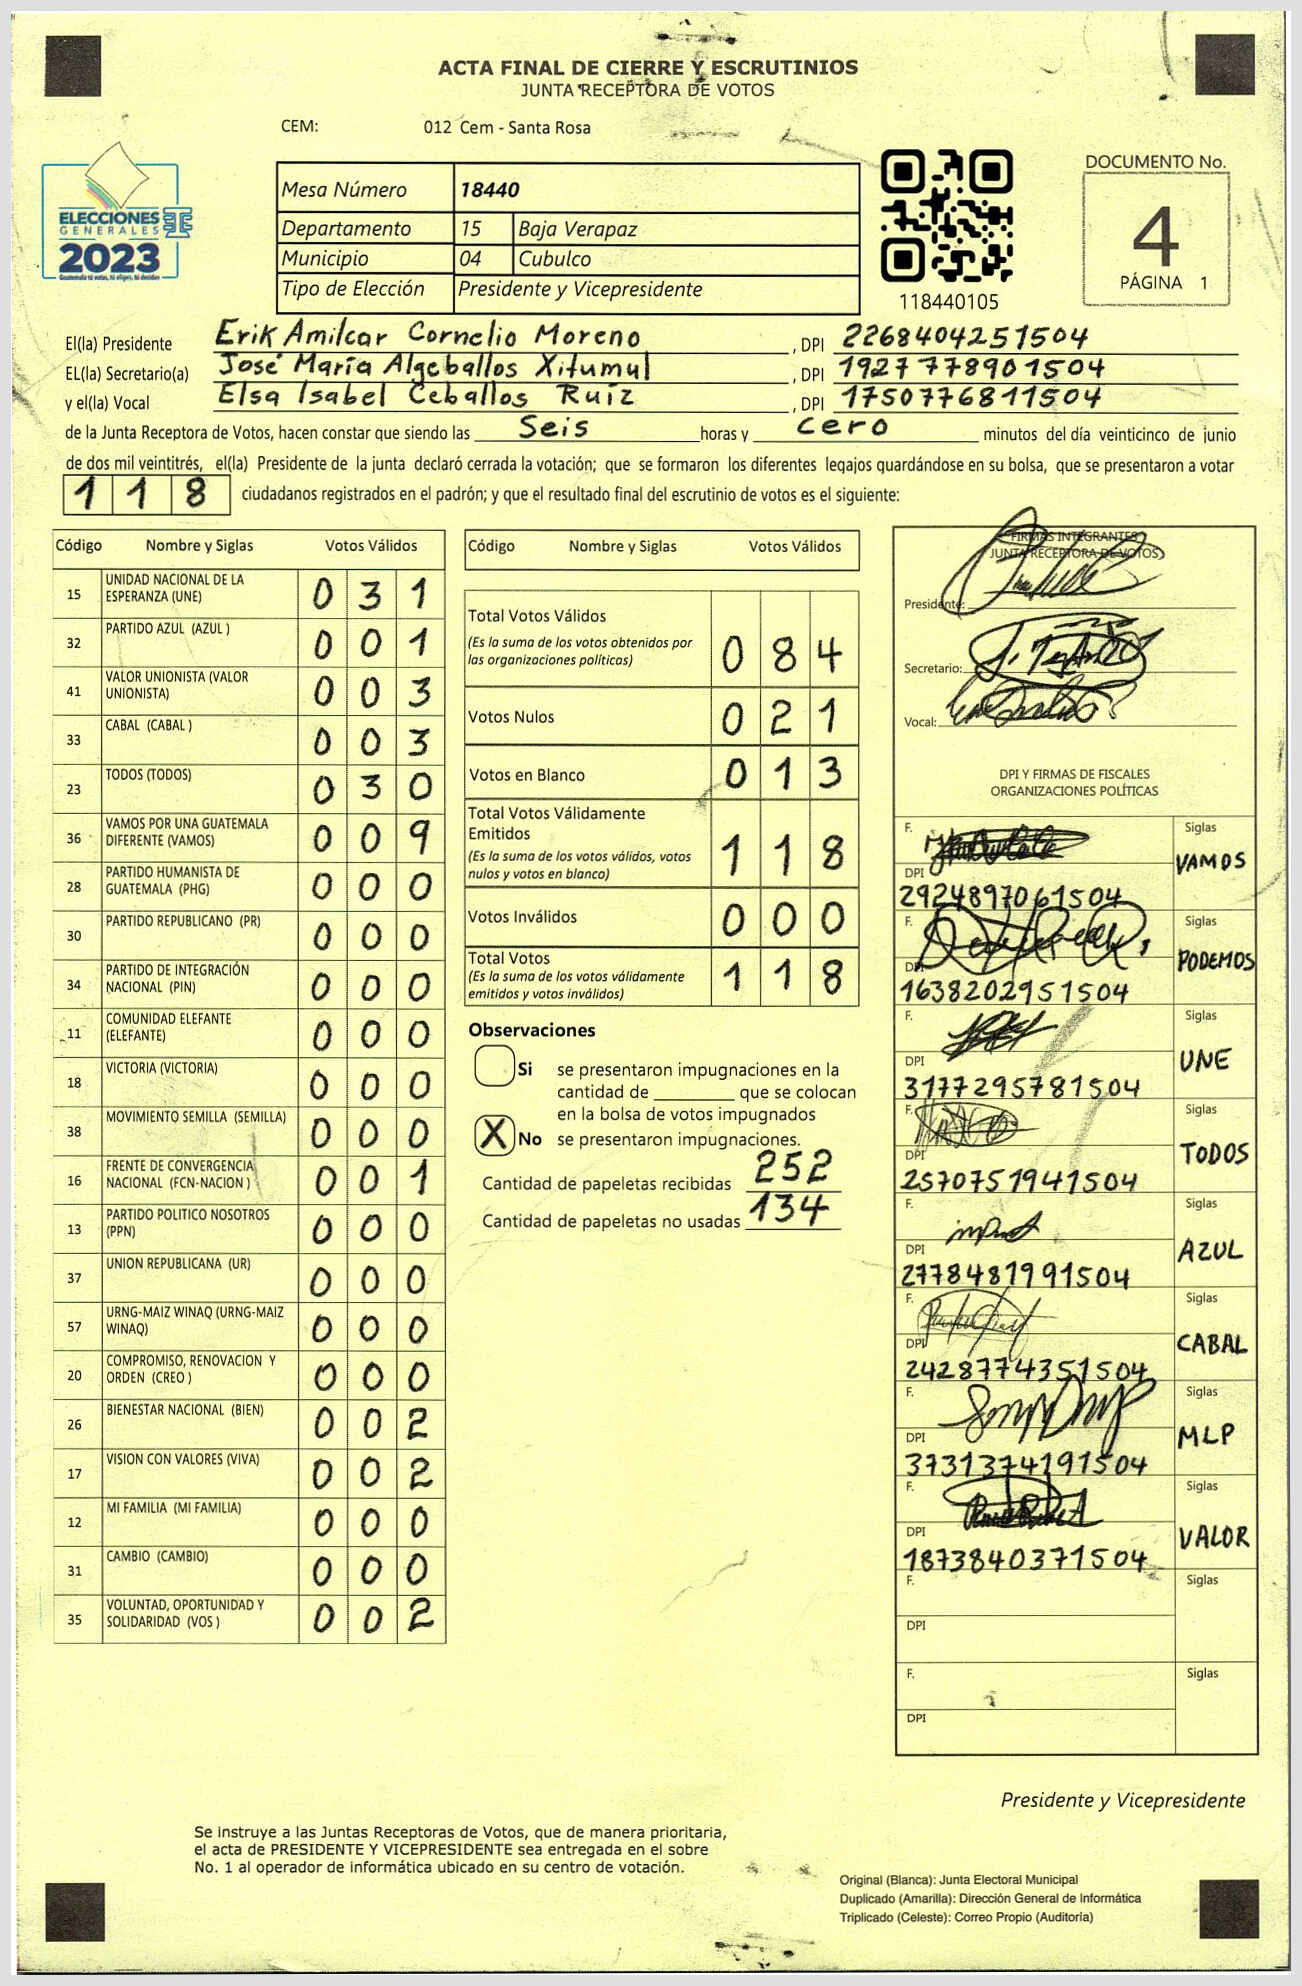 ACTA FINAL DE CIERRE Y ESCRUTINIOS
JUNTA RECEPTORA DE VOTOS
CEM: 012 Cem - Santa Rosa
ELECCIONES
GENERALES
2023
Mesa Número 18440
Departamento 15 Baja Verapaz
Municipio 04 Cubulco
Tipo de Elección Presidente y Vicepresidente
118440105
DOCUMENTO No.
4
PÁGINA 1
El(la) Presidente Erik Amilcar Cornelio Moreno , DPI 2268404251504
EL(la) Secretario(a) José María Algeballos Xitumul , DPI 1927778901504
y el(la) Vocal Elsa Isabel Ceballos Ruíz , DPI 1750776811504
de la Junta Receptora de Votos, hacen constar que siendo las Seis horas y cero minutos del día veinticinco de junio
de dos mil veintitrés, el(la) Presidente de la junta declaró cerrada la votación; que se formaron los diferentes legajos guardándose en su bolsa, que se presentaron a votar
118 ciudadanos registrados en el padrón; y que el resultado final del escrutinio de votos es el siguiente:
Código Nombre y Siglas Votos Válidos
15 UNIDAD NACIONAL DE LA ESPERANZA (UNE) 0 3 1
32 PARTIDO AZUL (AZUL ) 0 0 1
41 VALOR UNIONISTA (VALOR UNIONISTA) 0 0 3
33 CABAL (CABAL ) 0 0 3
23 TODOS (TODOS) 0 3 0
36 VAMOS POR UNA GUATEMALA DIFERENTE (VAMOS) 0 0 9
28 PARTIDO HUMANISTA DE GUATEMALA (PHG) 0 0 0
30 PARTIDO REPUBLICANO (PR) 0 0 0
34 PARTIDO DE INTEGRACIÓN NACIONAL (PIN) 0 0 0
11 COMUNIDAD ELEFANTE (ELEFANTE) 0 0 0
18 VICTORIA (VICTORIA) 0 0 0
38 MOVIMIENTO SEMILLA (SEMILLA) 0 0 0
16 FRENTE DE CONVERGENCIA NACIONAL (FCN-NACION ) 0 0 1
13 PARTIDO POLITICO NOSOTROS (PPN) 0 0 0
37 UNION REPUBLICANA (UR) 0 0 0
57 URNG-MAIZ WINAQ (URNG-MAIZ WINAQ) 0 0 0
20 COMPROMISO, RENOVACION Y ORDEN (CREO ) 0 0 0
26 BIENESTAR NACIONAL (BIEN) 0 0 2
17 VISION CON VALORES (VIVA) 0 0 2
12 MI FAMILIA (MI FAMILIA) 0 0 0
31 CAMBIO (CAMBIO) 0 0 0
35 VOLUNTAD, OPORTUNIDAD Y SOLIDARIDAD (VOS ) 0 0 2
Código Nombre y Siglas Votos Válidos
Total Votos Válidos
(Es la suma de los votos obtenidos por
las organizaciones políticas) 0 8 4
Votos Nulos 0 2 1
Votos en Blanco 0 1 3
Total Votos Válidamente
Emitidos
(Es la suma de los votos válidos, votos
nulos y votos en blanco) 1 1 8
Votos Inválidos 0 0 0
Total Votos
(Es la suma de los votos válidamente
emitidos y votos inválidos) 1 1 8
Observaciones
Si se presentaron impugnaciones en la
cantidad de ________ que se colocan
en la bolsa de votos impugnados
X No se presentaron impugnaciones.
Cantidad de papeletas recibidas 252
Cantidad de papeletas no usadas 134
FIRMAS INTEGRANTES
JUNTA RECEPTORA DE VOTOS
Presidente:
Secretario:
Vocal:
DPI Y FIRMAS DE FISCALES
ORGANIZACIONES POLÍTICAS
F. Siglas
VAMOS
DPI
2924897061504
F. Siglas
PODEMOS
DPI
1638202951504
F. Siglas
UNE
DPI
3177295781504
F. Siglas
TODOS
DPI
2570751941504
F. Siglas
AZUL
DPI
2778481991504
F. Siglas
CABAL
DPI
2428774351504
F. Siglas
MLP
DPI
3731374191504
F. Siglas
VALOR
DPI
1873840371504
F. Siglas
DPI
F. Siglas
DPI
Presidente y Vicepresidente
Se instruye a las Juntas Receptoras de Votos, que de manera prioritaria,
el acta de PRESIDENTE Y VICEPRESIDENTE sea entregada en el sobre
No. 1 al operador de informática ubicado en su centro de votación.
Original (Blanca): Junta Electoral Municipal
Duplicado (Amarilla): Dirección General de Informática
Triplicado (Celeste): Correo Propio (Auditoría)